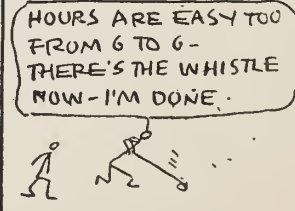 HOURS ARE EASY TOO
FROM 6 TO 6-
THERE'S THE WHISTLE
NOW-I'M DONE.